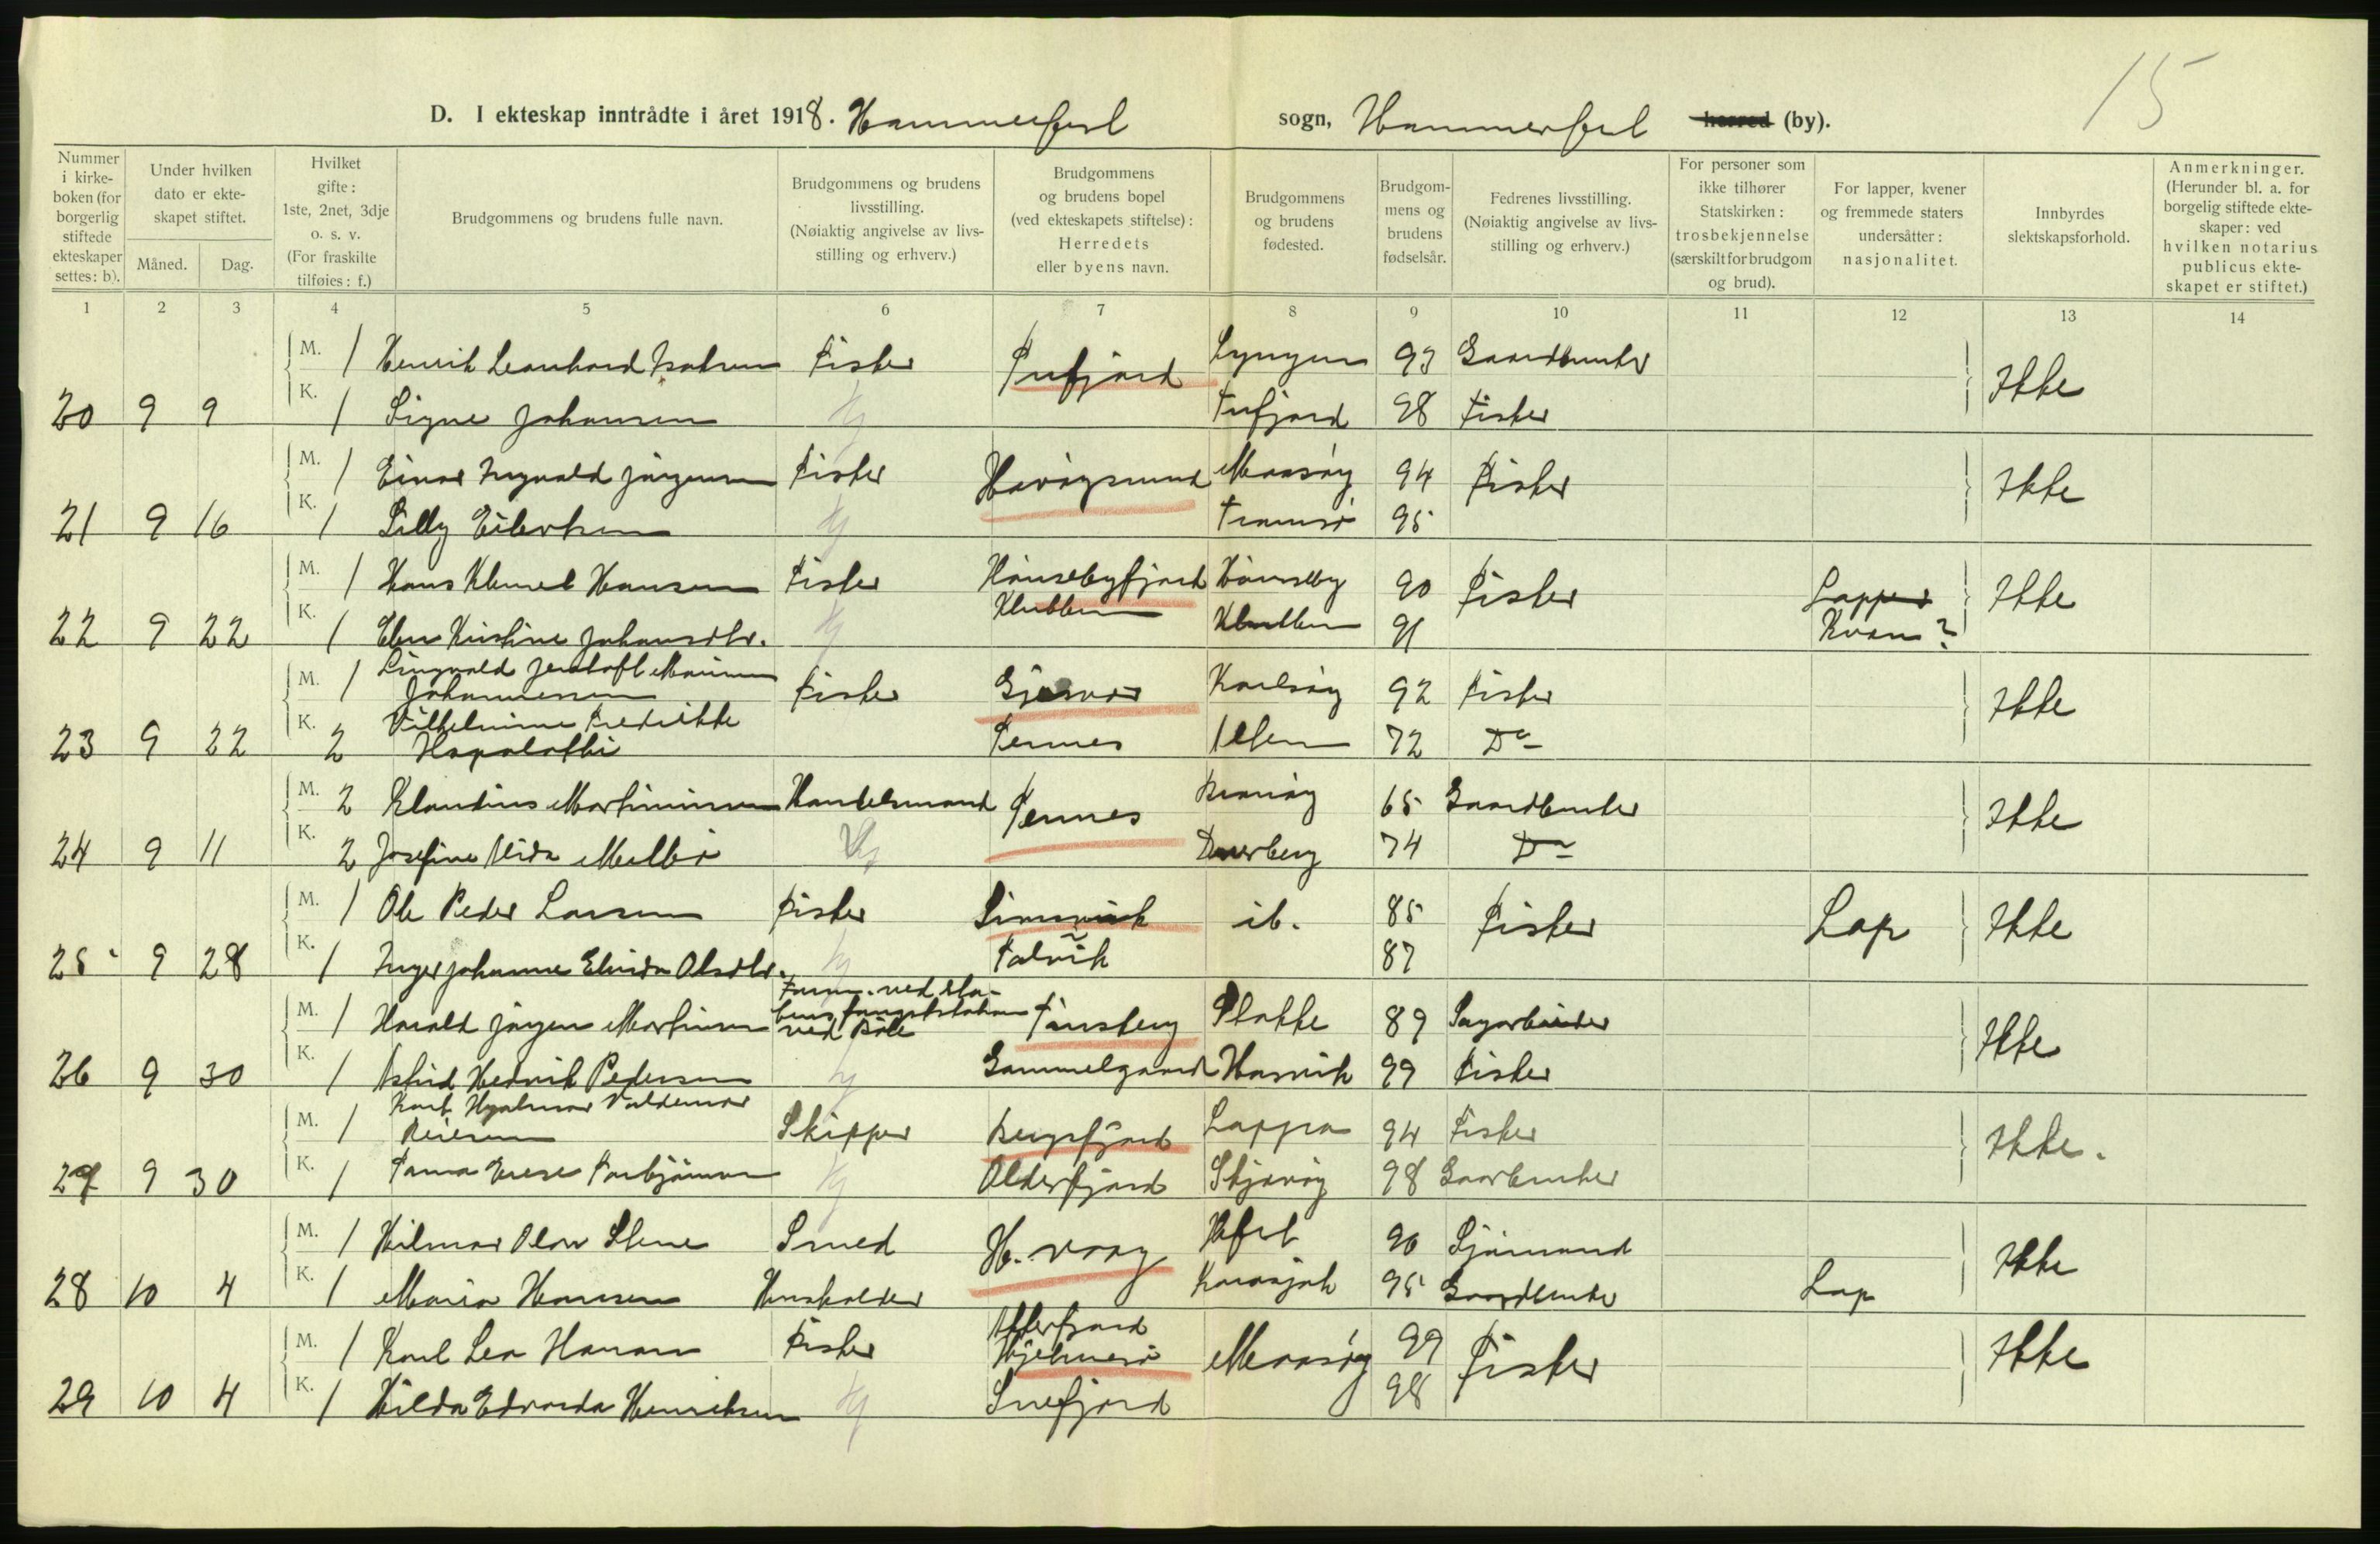 15
D. I ekteskap inntrådte i året 1918. Hammerfest sogn, Hammerfest herred (by).
Nummer i kirkeboken (for borgerlig stiftede ekteskaper settes: b). Under hvilken dato er ekteskapet stiftet. Måned. Dag. Hvilket gifte: 1ste, 2net, 3dje o. s. v. (For fraskilte tilføies: f.) Brudgommens og brudens fulle navn. Brudgommens og brudens livsstilling. (Nøiaktig angivelse av livsstilling og erhverv.) Brudgommens og brudens bopel (ved ekteskapets stiftelse): Herredets eller byens navn. Brudgommens og brudens fødested. Brudgommens og brudens fødselsår. Fedrenes livsstilling. (Nøiaktig angivelse av livsstilling og erhverv.) For personer som ikke tilhører Statskirken: trosbekjennelse (særskilt for brudgom og brud). For lapper, kvener og fremmede staters undersåtter: nasjonalitet. Innbyrdes slektskapsforhold. Anmerkninger. (Herunder bl. a. for borgelig stiftede ekteskaper: ved hvilken notarius publicus ekteskapet er stiftet.)
1 2 3 4 5 6 7 8 9 10 11 12 13 14
M. 1 Henrik Leonhard Isaksen Fisker Tufjord Lyngen 93 Gaardbruker Ikke
20 9 9 K. 1 Signe Johansen Tufjord 98 Fisker
M. 1 Einar Ingvald Jørgensen Fisker Havøysund Maasøy 94 Fisker Ikke
21 9 16 K. 1 Lilly Eilertsen Tromsø 95
M. 1 Hans Klemet Hansen Fisker Hønsebyfjord Hønseby 90 Fisker Lapper Ikke
22 9 22 K. 1 Elen Kristine Johansdtr. Klubben Klubben 91 Kvæn?
M. 1 Johannessen Fisker Gjesvær Karlsøy 92 Fisker Ikke
23 9 22 K. 2 Vilhelmine Fredrikke Tennes 72 Do
M. 2 Klaudius Martinussen Handelsmand Tennes 65 Gaardbruker Ikke
24 9 11 K. 2 Josefine 74 Do
M. 1 Ole Peder Larsen Fisker ib. 85 Fisker Lap Ikke
25 9 28 K. 1 Inger Johanne Elvida Olsdtr. Talvik 87
M. 1 Harald Jørgen Martinsen Tønsberg Stokke 89 Ikke
26 9 30 K. 1 Astrid Hedvik Pedersen Gammelgaard Hasvik 99 Fisker
Karl Hjalmar Valdemar
M. 1 Reiersen Skipper Bergsfjord Loppa 94 Fisker Ikke.
27 9 30 K. 1 Olderfjord Skjærvøy 98 Gaarbruker
M. 1 Hilmar Olav Stene Smed H. vaag Hfest 90 Sjømand Ikke
28 10 4 K. 1 Maria Hansen Husholder Karasjok 95 Gaardbruker Lap
M. 1 Karl Leo Hansen Fisker Hjelmsø Maasøy 99 Fisker Ikke
29 10 4 K. 1 Hilda Edvarda Henriksen Snefjord 98